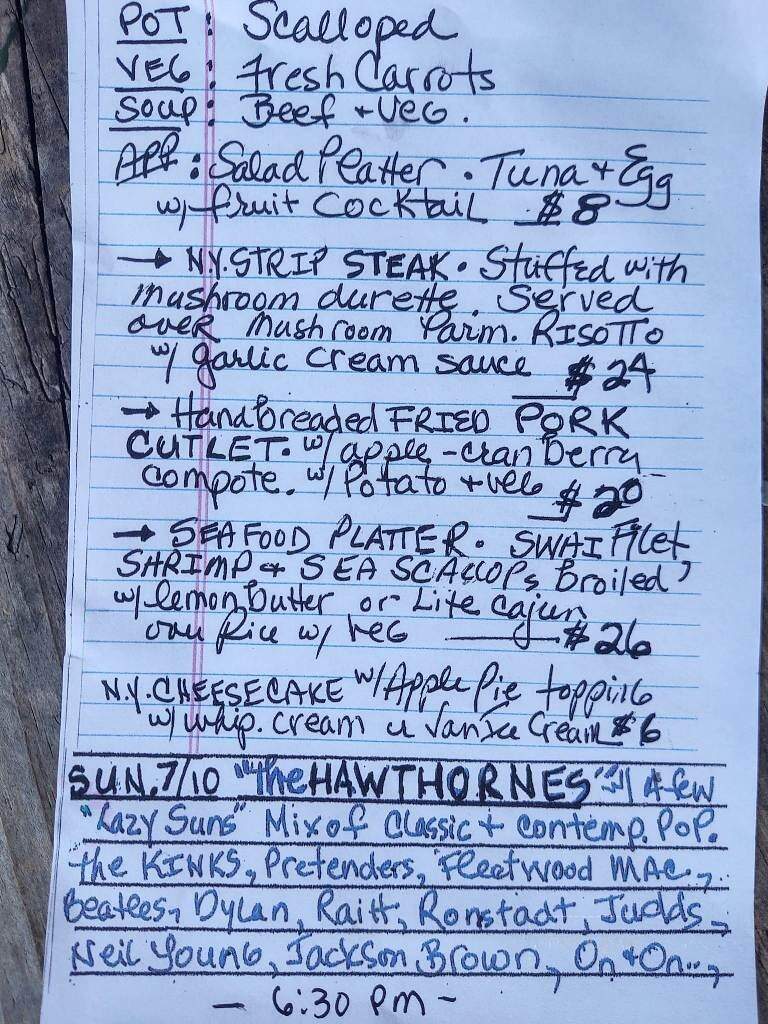 POT : Scalloped
VEG : Fresh Carrots
SOUP : Beef + VEG.
APP : Salad Platter . Tuna + Egg
w/ fruit COCKTAIL $8
→ N.Y. STRIP STEAK. Stuffed with
mushroom durette. Served
over Mushroom Parm. RISOTTO
w/ garlic cream sauce $24
→ Hand Breaded FRIED PORK
CUTLET. w/ apple-cranberry
compote. w/ Potato + veg $20
→ SEAFOOD PLATTER. SWAI Filet,
SHRIMP & SEA SCALLOPS Broiled
w/ lemon butter or Lite Cajun
over Rice w/ veg $26
N.Y. CHEESECAKE w/ Apple Pie topping
w/ whip. cream Cream $6
SUN. 7/10 "the HAWTHORNES" A few
"Lazy Suns" Mix of Classic + contemp. POP.
the KINKS, Pretenders, Fleetwood MAC,
Beatles, Dylan, Raitt, Ronstadt, Judds,
Neil Young, Jackson Brown, On + On..,
- 6:30 PM -